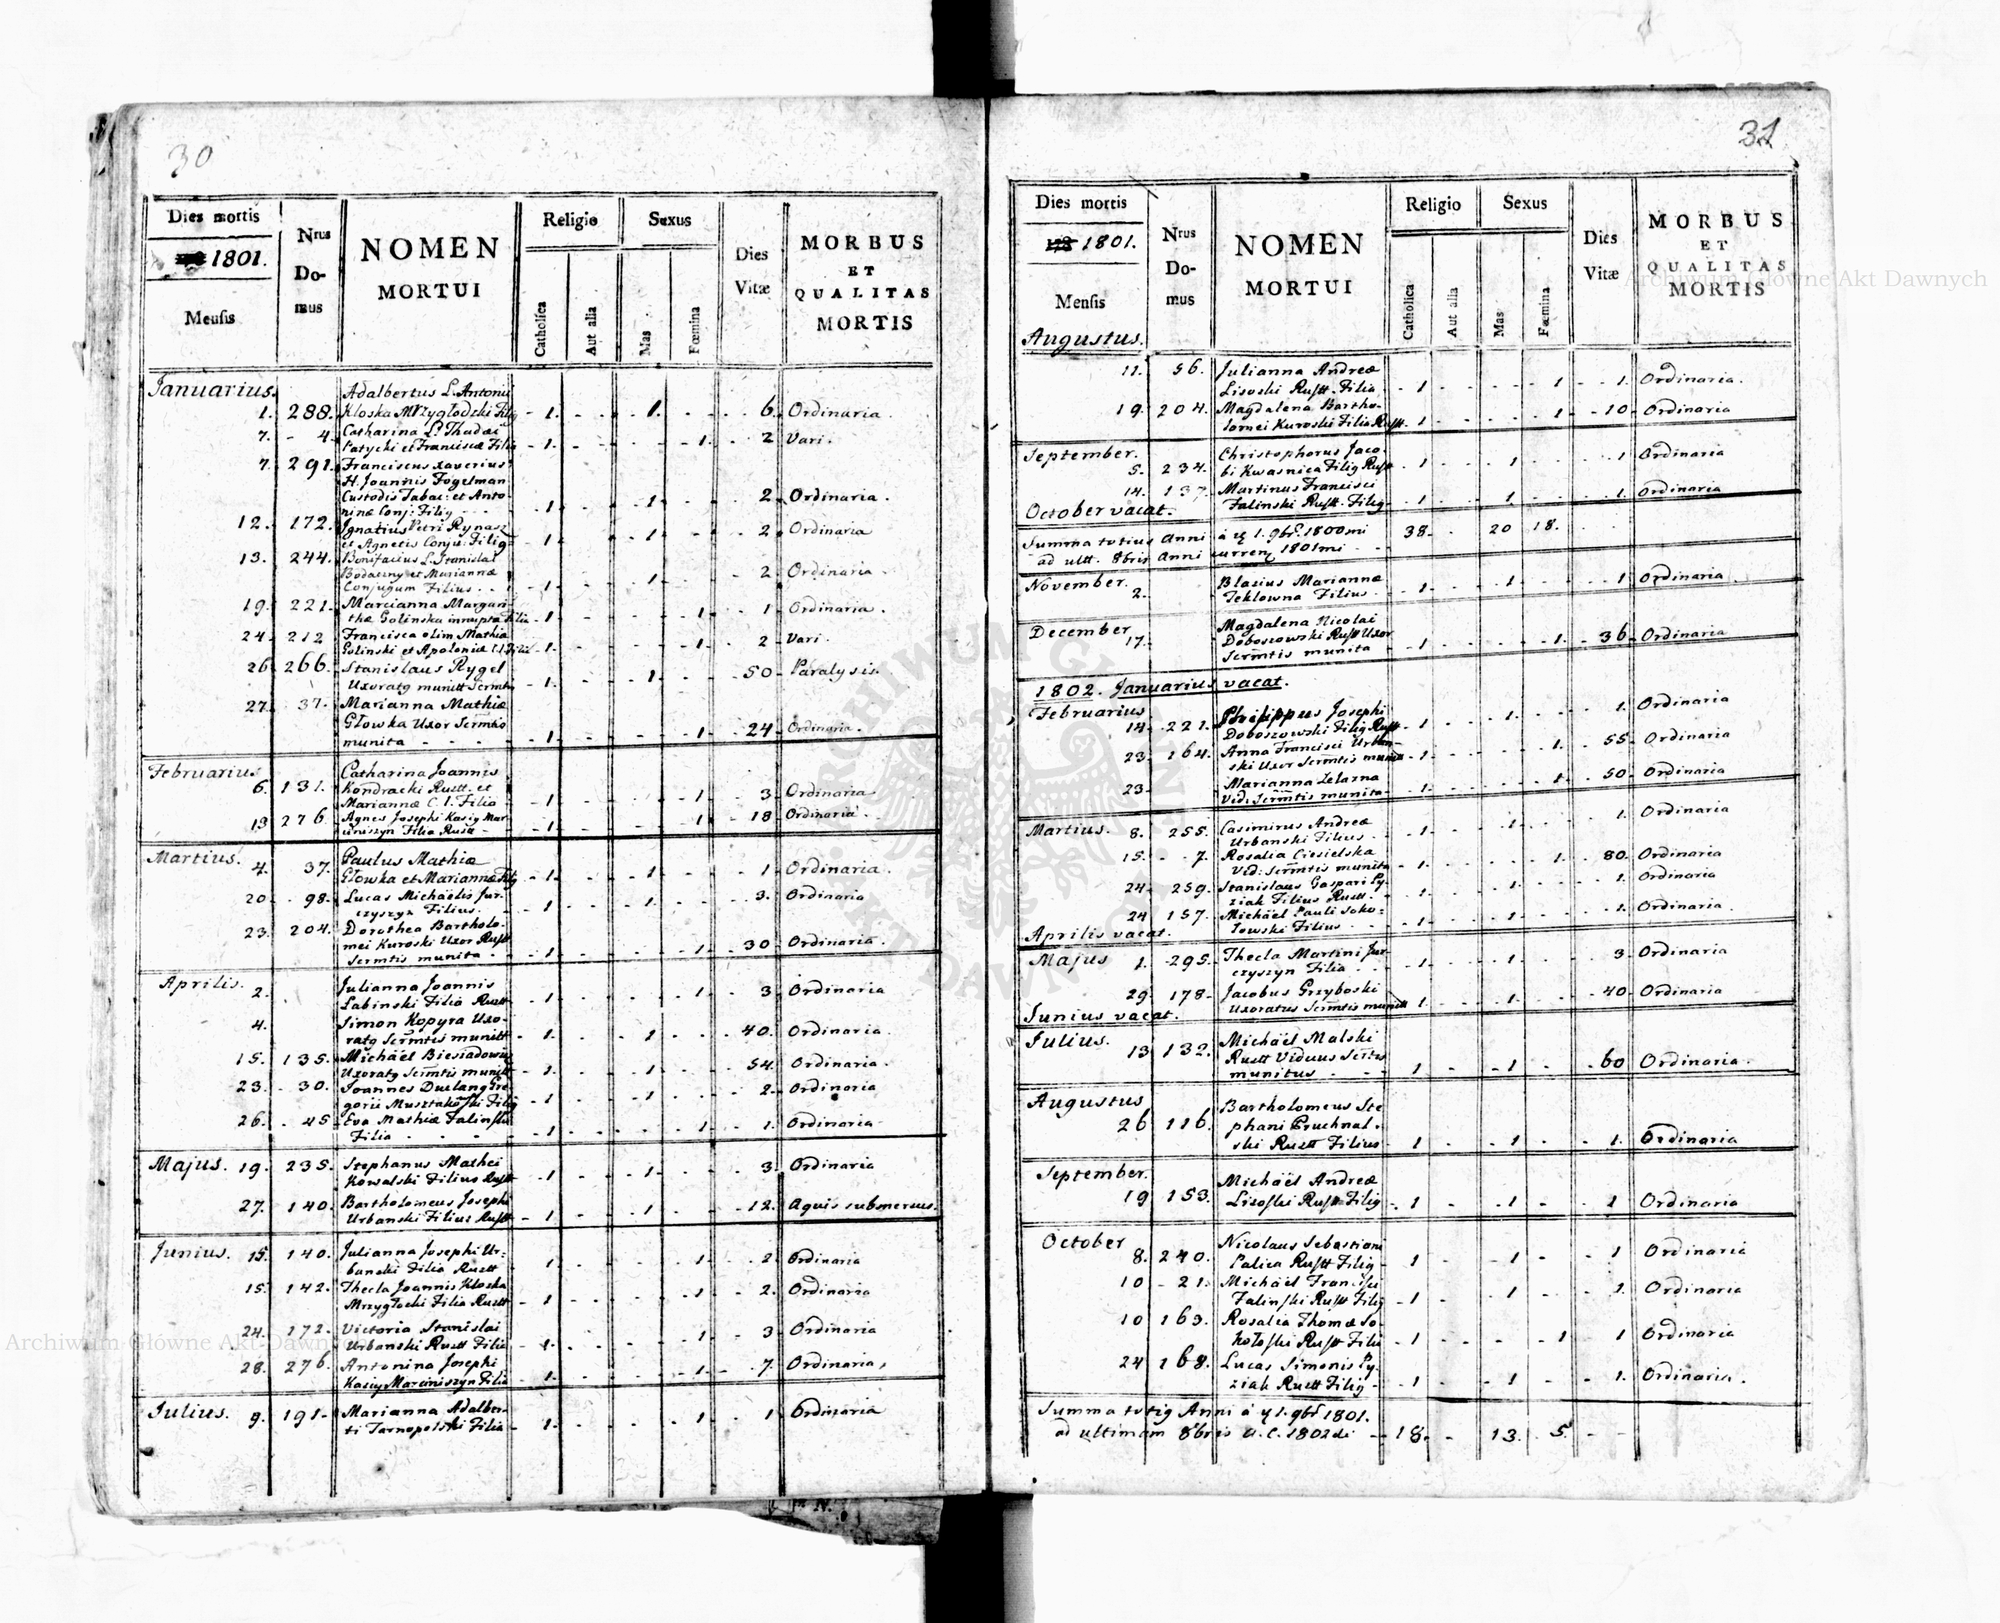 30
Dies mortis
1801.
Mensis
Nrus
Do-
mus
NOMEN
MORTUI
Religio
Catholica
Aut alia
Sexus
Mas
Fœmina
Dies
Vitæ
MORBUS
ET
QUALITAS
MORTIS
Januarius.
Adalbertus L. Antonii
1. 288. Kloska Mrzygłodzki Filig - 1. - - 1. - - 6. Ordinaria
7. - 4. Catharina L. Thadæi
Patycki et Franciscæ Filia - 1. - - - 1. - 2 Vari.
7. 291. Franciscus Xaverius
H. Joannis Fogelman
Custodis Tabac: et Anto-
ninæ Conj: Filig - 1. - - 1. - - 2. Ordinaria.
12. 172. Ignatius Petri Rynasz
et Agnetis Conju: Filig - 1. - - 1. - - 2. Ordinaria
13. 244. Bonifacius L. Stanislai
Bodaczny et Mariannæ
Conjugum Filius - 1. - - 1. - - 2. Ordinaria
19. 221. Marcianna Margari-
thæ Golinska innupta Filia - 1. - - - 1. - 1 Ordinaria.
24. 212 Francisca olim Mathiæ
Golinski et Apoloniæ C. l. Filia - 1. - - - 1. - 2 Vari.
26. 266. Stanislaus Rygel
Uxoratg munitt Scrmtis - 1. - - 1. - - 50 Paralysis.
27. 37. Marianna Mathiæ
Głowka Uxor Scrmtis
munita - - - 1. - - - 1. - 24 Ordinaria.
Februarius
6. 131. Catharina Joannis
Kondracki Rustt. et
Mariannæ C. l. Filia - 1. - - - 1. - 3. Ordinaria
13 276 Agnes Josephi Kasig Mar-
ciniszyn Filia Rusti - 1. - - - 1. - 18 Ordinaria.
Martius.
4. 37. Paulus Mathiæ
Głowka et Mariannæ Filig - 1. - - 1. - - 1 Ordinaria.
20. 98. Lucas Michäelis Jur-
czyszyn Filius. - 1. - - 1. - - 3. Ordinaria
23. 204. Dorothea Bartholo-
mei Kuroski Uxor Rustt
Scrmtis munita - 1. - - - 1. - 30 Ordinaria.
Aprilis.
2. Julianna Joannis
Labinski Filia Rustt - 1. - - - 1. - 3 Ordinaria
4. Simon Kopyra Uxo-
ratg Scrmtis munitt - 1. - - 1. - - 40. Ordinaria.
15. 135. Michäel Biesiadowic
Uxoratg Scrmtis munitt - 1. - - 1. - - 54. Ordinaria
23. - 30. Joannes Duclang Gre-
gorii Musztakoski Filig - 1. - - 1. - - 2. Ordinaria
26. - 45 Eva Mathiæ Falinski
Filia - - - 1. - - - 1. - 1. Ordinaria
Majus. 19. 235. Stephanus Mathei
Kowalski Filius Rustt - 1. - - 1. - - 3. Ordinaria
27. 140. Bartholomeus Josephi
Urbanski Filius Rustt - 1. - - 1. - - 12. Aquis submersus.
Junius. 15. 140. Julianna Josephi Ur-
banski Filia Rustt 1. - - - 1. - 2 Ordinaria
15. 142. Thecla Joannis Kloska
Mrzygłocki Filia Rustt - 1. - - - 1. - 2. Ordinaria
24. 172. Victoria Stanislai
Urbanski Rustt Filia - 1. - - - 1. - 3 Ordinaria
28. 276. Antonina Josephi
Kasig Marciniszyn Filia - 1. - - - 1. - 7. Ordinaria,
Julius. 9. 191. Marianna Adalber-
ti Tarnopolski Filia - 1. - - - 1. - 1 Ordinaria
31
Dies mortis
1801.
Mensis
Nrus
Do-
mus
NOMEN
MORTUI
Religio
Catholica
Aut alia
Sexus
Mas
Fœmina
Dies
Vitæ
MORBUS
ET
QUALITAS
MORTIS
Augustus.
11. 56. Julianna Andreæ
Lisoski Rustt. Filia - 1 - - - 1 - 1. Ordinaria.
19. 204. Magdalena Bartho-
lomei Kuroski Filia Rustt. 1. - - - 1 - 10 Ordinaria
September.
5. 234. Christophorus Jaco-
bi Kwasnica Filig Rustt - 1 - - 1 - - 1 Ordinaria
14. 137. Martinus Francisci
Falinski Rustt. Filig - 1 - - 1 - - 1. Ordinaria
October vacat.
Summa totius Anni a 1. 9br. 1800mi 38. - 20 18.
ad ultt. 8bris Anni curren 1801mi
November.
2. Blasius Mariannæ
Teklowna Filius - 1. - - 1 - - 1 Ordinaria.
December
17. Magdalena Nicolai
Doboszowski Rustt Uxor
Scrmtis munita - 1 - - - 1. - 36 Ordinaria
1802. Januarius vacat.
Februarius
14. 221. Philippus Josephi
Doboszowski Filig Rustt - 1 - - 1. - - 1. Ordinaria
23. 164. Anna Francisci Urban-
ski Uxor Scrmtis munita - 1 - - - 1. - 55. Ordinaria
23. Marianna Zelazna
Vid: Scrmtis munita - 1. - - - 1 - 50. Ordinaria
Martius. 8. 255. Casimirus Andreæ
Urbanski Filius - 1 - - 1 - - 1. Ordinaria
15. - 7. Rosalia Ciesielska
Vid: Scrmtis munita - 1. - - - 1. - 80. Ordinaria
24. 259. Stanislaus Gaspari Py-
ziak Filius Rustt. - 1. - - 1 - - 1. Ordinaria
24 157. Michäel Pauli Soko-
lowski Filius - 1 - - 1 - - 1. Ordinaria.
Aprilis vacat.
Majus 1. 295. Thecla Martini Jur-
czyszyn Filia - 1. - - 1 - - 3. Ordinaria
29. 178. Jacobus Grzyboski
Uxoratus Scrmtis munitt 1. - - 1. - - 40. Ordinaria
Junius vacat.
Julius.
13 132. Michäel Malski
Rustt Viduus Scrtis
munitus - - 1 - - 1. - - 60 Ordinaria.
Augustus
26 116. Bartholomeus Ste
phani Pruchnal-
ski Rustt Filius - 1 - - 1 - - 1. Ordinaria
September.
19 153. Michäel Andreæ
Lisoski Rustt Filig - 1 - - 1 - - 1 Ordinaria
October
8. 240. Nicolaus Sebastiani
Palica Rustt Filig - 1 - - 1 - - 1 Ordinaria
10 - 21. Michäel Francisci
Falinski Rustt Filig - 1 - - 1. - - 1. Ordinaria
10 163. Rosalia Thomæ So-
kołoski Rustt Filia - 1 - - - 1 - 1 Ordinaria
24 168. Lucas Simonis Py-
ziak Rustt Filig - 1 - - 1 - - 1. Ordinaria.
Summa totig Anni a 1. 9br 1801.
ad ultimam 8bris a. c. 1802di - 18. - 13. 5.
Archiwum Główne Akt Dawnych
Archiwum Główne Akt Dawnych
ARCHIWUM GŁÓWNE AKT DAWNYCH